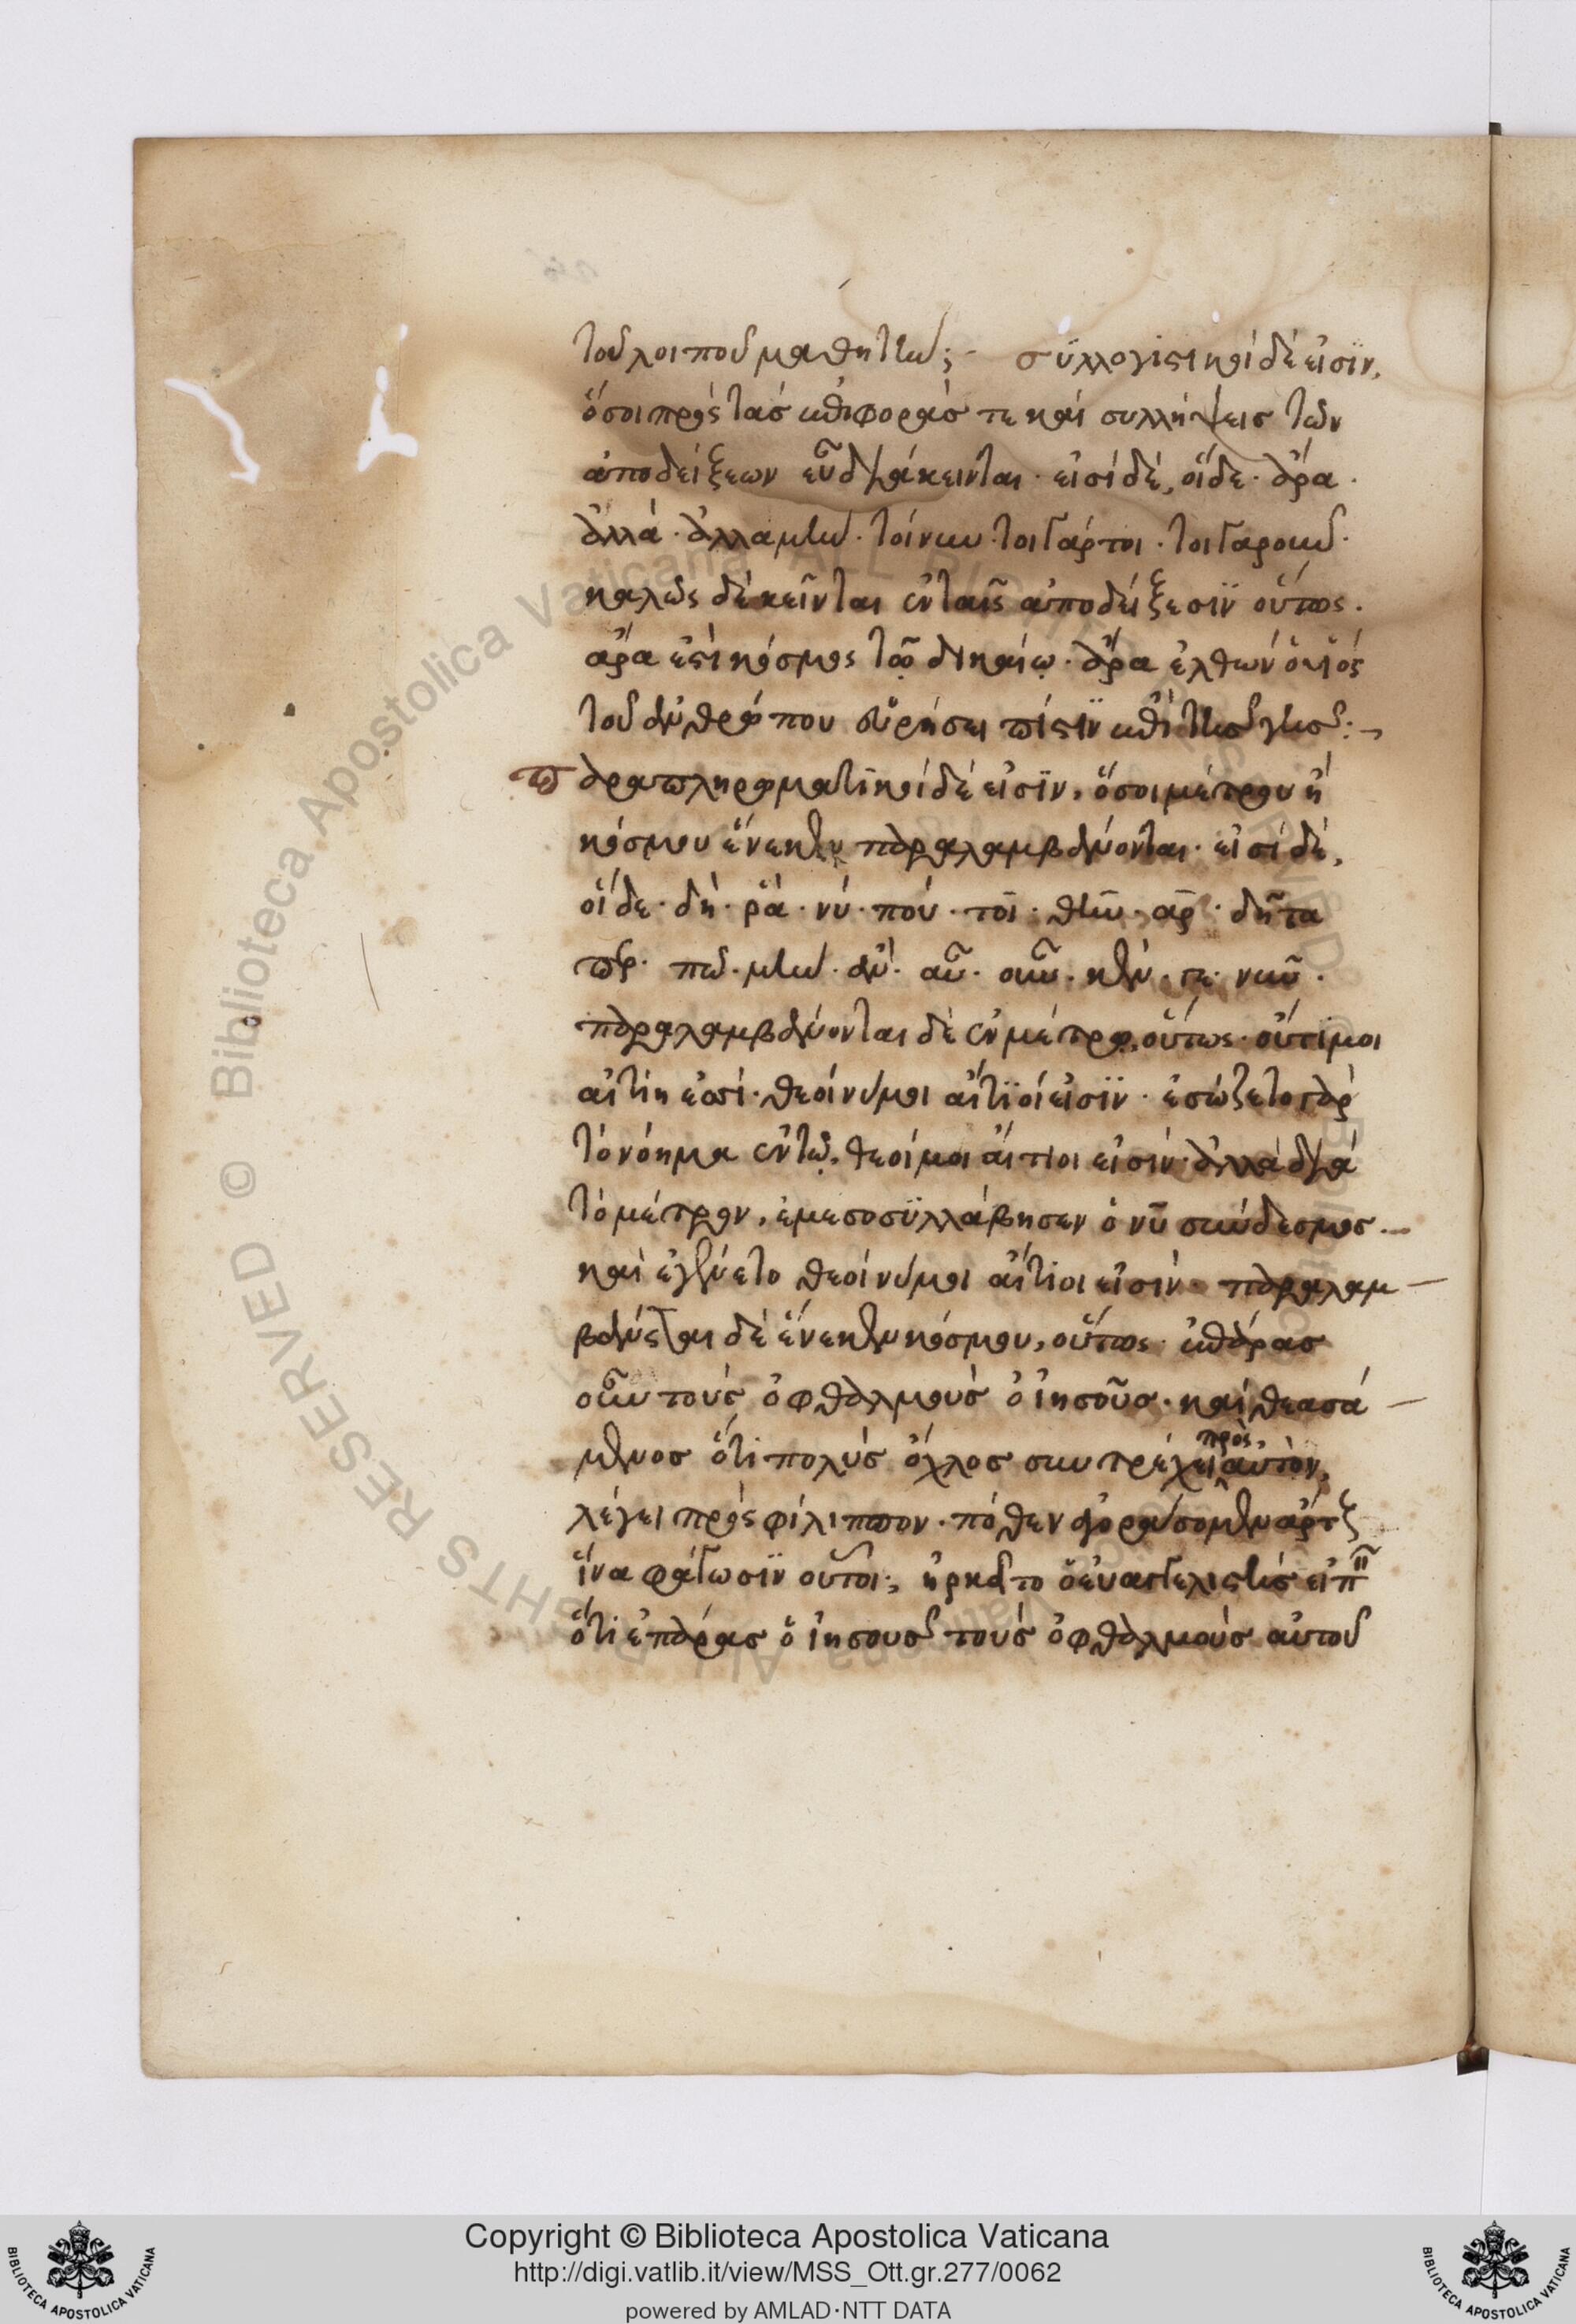 τοῦ λοιποῦ μαθητήν; συλλογιστικοὶ δέ εἰσϊν,
ὅσοι πρὸς τὰς ἐπιφορὰς τε καὶ συλλήψεις τῶν
ἀποδείξεων εὖ διάκεινται· εἰσὶ δέ, οἵδε· ἄρα·
ἀλλά· ἀλλαμήν· τοίνυν· τοιγάρτοι· τοιγαροῦν·
καλῶς δὲ κεῖνται ἐν ταῖς ἀποδείξεσϊν οὕτως·
ἄρα ἐστὶ κόσμος τῷ δικαίῳ· ἄρα ἐλθὼν ὁ υἱὸς
τοῦ ἀνθρώπου εὑρήσει πίστϊν ἐπὶ τῆς γῆς:
παραπληρωματικοὶ δέ εἰσϊν, ὅσοι μέτρου ἢ
κόσμου ἕνεκεν παραλαμβάνονται· εἰσὶ δέ,
οἵδε· δή· ῥά· νύ· πού· τοί· θήν· ἄρ· δῆτα
περ· πω· μήν· ἄν· αὖ· οὖν· κέν· γε· νῦν·
παραλαμβάνονται δὲ ἐν μέτρῳ, οὕτως· οὔτί μοι
αἰτίη ἐσσί· θεοί νύ μοι αἴτϊοί εἰσϊν· ἐσώζετο γὰρ
τὸ νόημα ἐν τῷ, θεοί μοι αἴτιοι εἰσίν· ἀλλὰ διὰ
τὸ μέτρον, ἐμεσοσϋλλάβησεν ὁ νῦ σύνδεσμος
καὶ ἐγένετο θεοί νύ μοι αἴτιοι εἰσίν· παραλαμ
βάνεται δὲ ἕνεκεν κόσμου, οὕτως· ἐπάρας
οὖν τοὺς ὀφθαλμοὺς ὁ ἰησοῦς· καὶ θεασά
μενος ὅτι πολὺς ὄχλος συντρέχει πρὸς αὐτόν,
λέγει πρὸς φίλιππον· πόθεν ἀγοράσομεν ἄρτους
ἵνα φάγωσϊν οὗτοι; ἠρκεῖτο ὁ εὐαγγελιστὴς εἰπεῖν
ὅτι ἐπάρας ὁ ἰησοῦς τοὺς ὀφθαλμοὺς αὐτοῦ
Copyright © Biblioteca Apostolica Vaticana
http://digi.vatlib.it/view/MSS_Ott.gr.277/0062
powered by AMLAD·NTT DATA